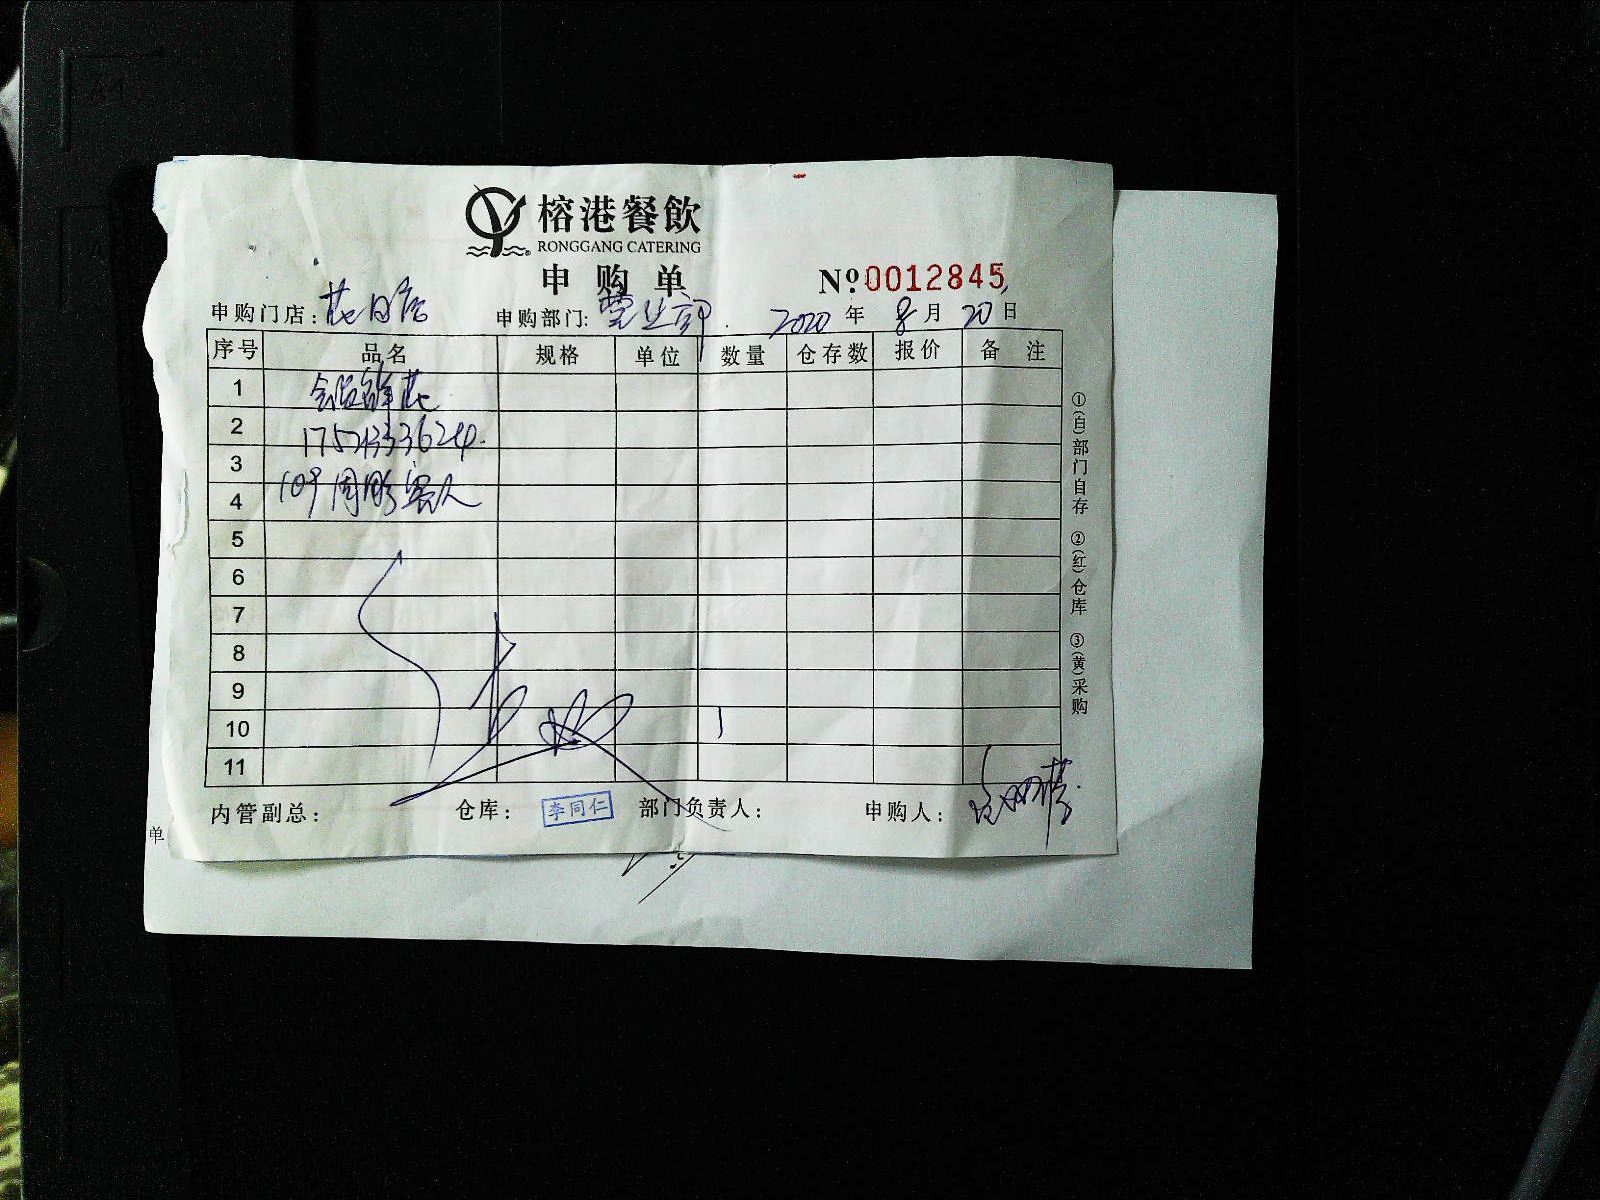 榕港餐飲
RONGGANG CATERING
申购单
№0012845
申购门店: 申购部门: 营业部 2020 年 8 月 20 日
序号 品名 规格 单位 数量 仓存数 报价 备注
1 会员鲜花
2
3
4 109周 客人
5
6
7
8
9
10 1
11
内管副总: 仓库: 李同仁 部门负责人: 申购人:
①(白)部门自存 ②(红)仓库 ③(黄)采购
单